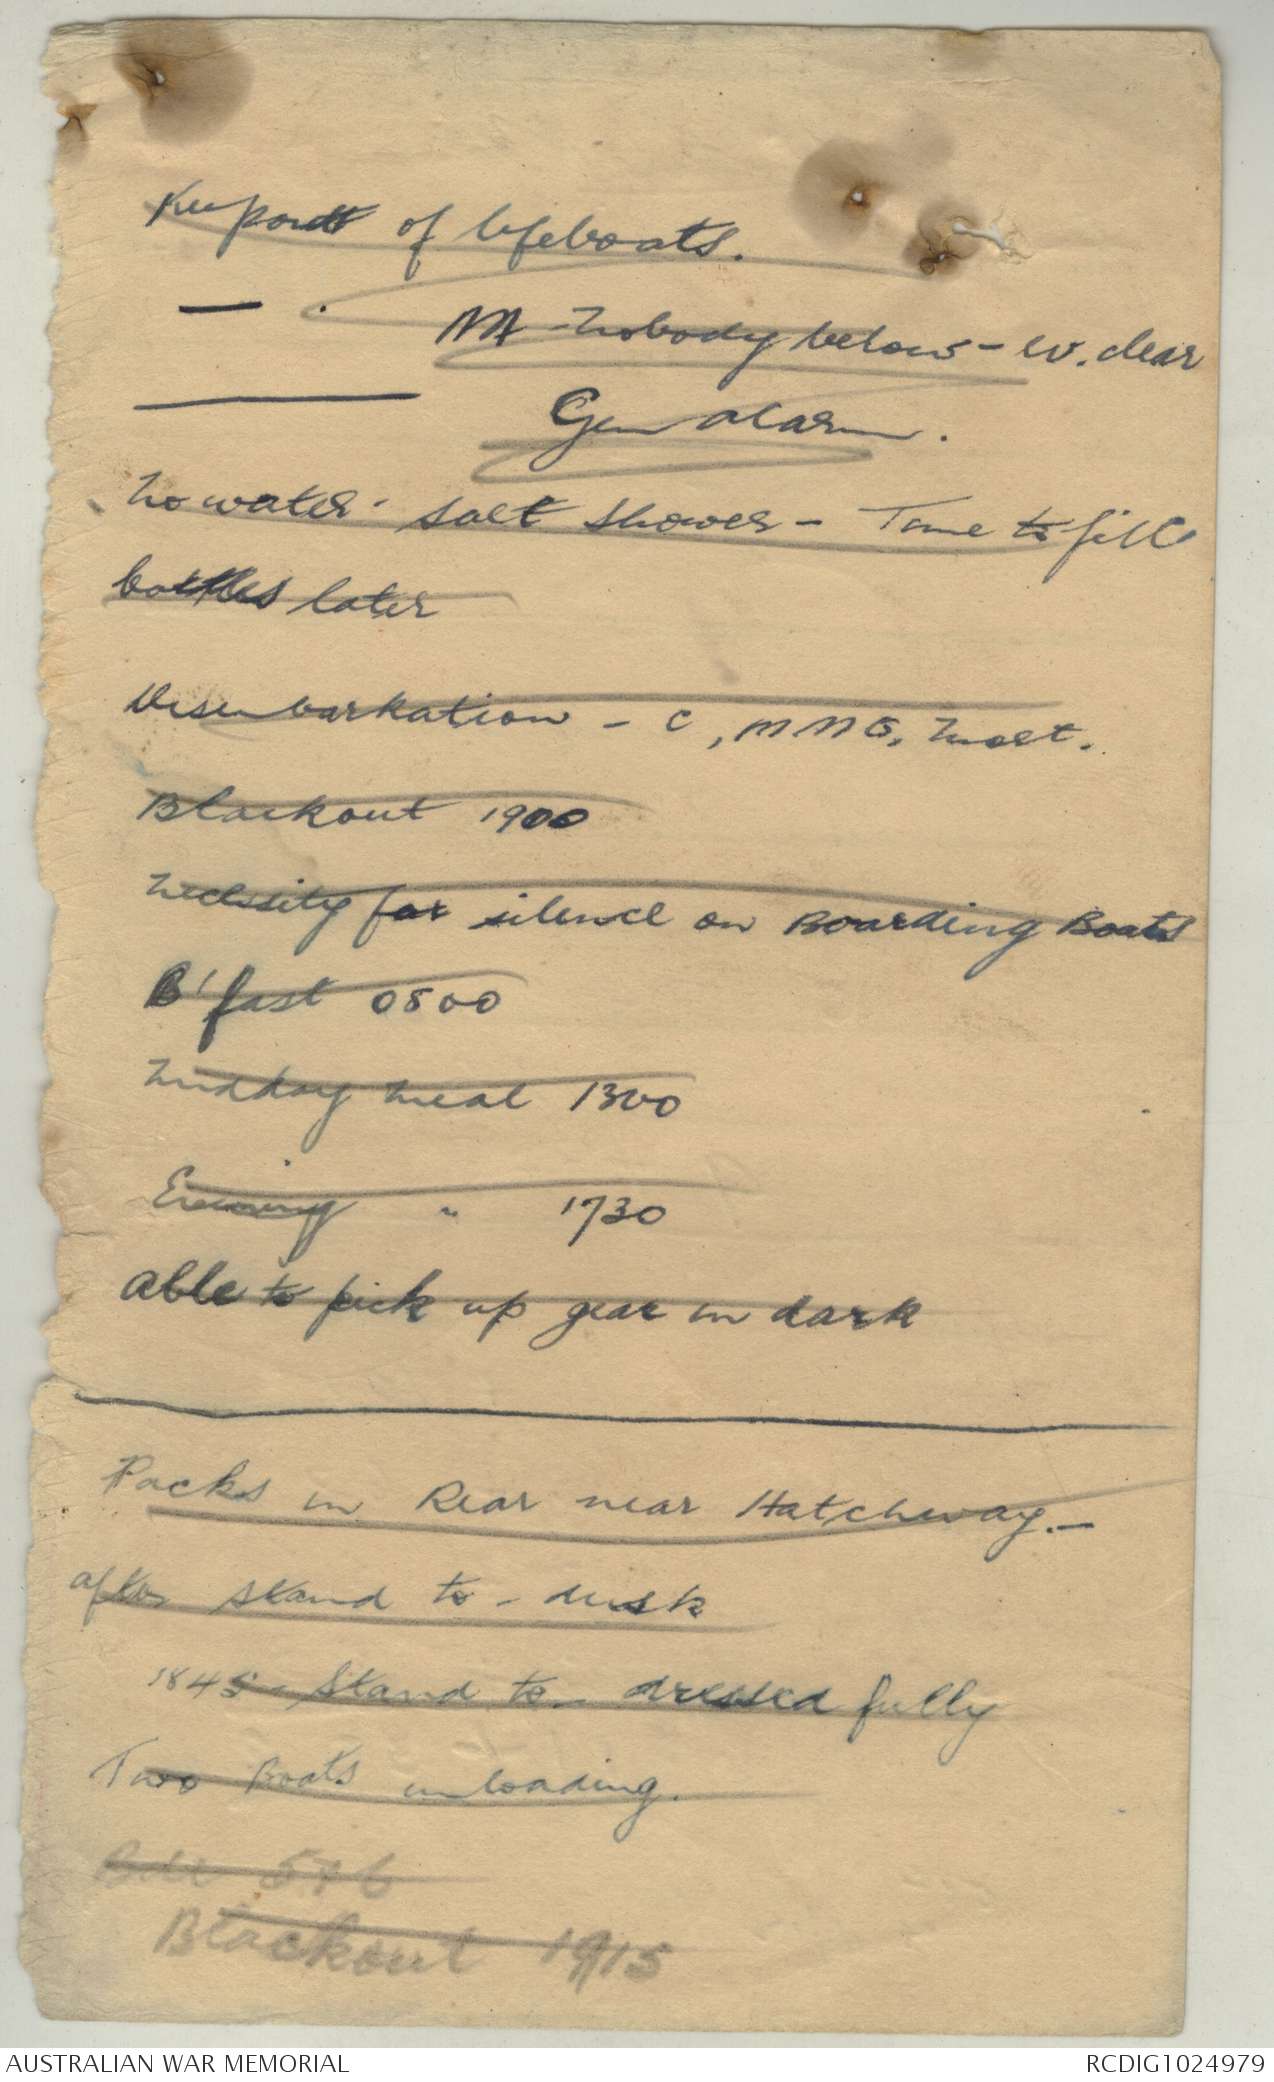 Keep out of lifeboats.
AA - Nobody below - W. clear
Gen alarm.
No water - salt shower - Time to fill
bottles later
Disembarkation - C, MMG, Mort.
Blackout 1900
Necessity for silence on Boarding Boats
B'fast 0800
Midday Meal 1300
Evening " 1730
able to pick up gear in dark
Packs in Rear near Hatchway. -
after stand to - dusk
1845 - Stand to - dressed fully
Two Boats unloading.
Blackout 1915
AUSTRALIAN WAR MEMORIAL
RCDIG1024979